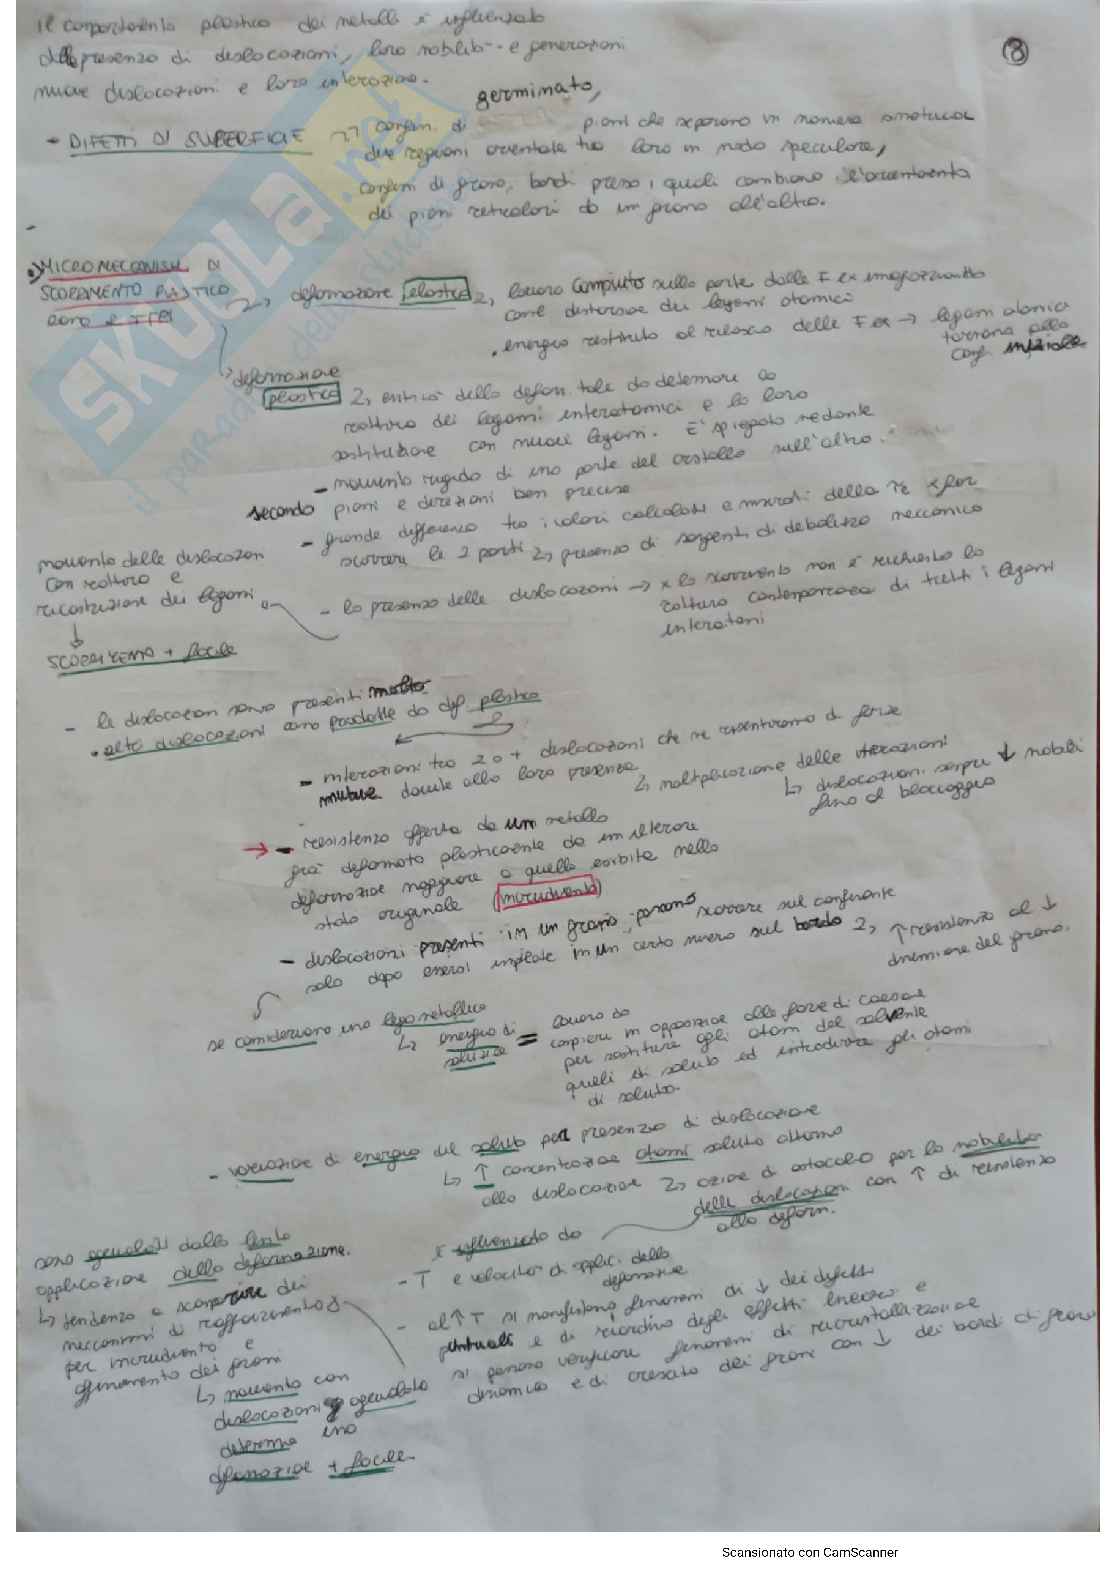 Il comportamento plastico dei metalli è influenzato
dalla presenza di dislocazioni, loro mobilità e generazioni
nuove dislocazioni e loro interazione.
8
- DIFETTI DI SUPERFICIE confini di germinato, piani che separano in maniera
due regioni orientate tra loro in modo speculare,
confini di grano, bordi presso i quali cambiano l'orientamento
dei piani reticolari da un grano all'altro.
MICROMECCANISMI DI
SCORRIMENTO PLASTICO
deformazione elastica lavoro compiuto sulla parte dalle F ex immagazzinato
come distorsione dei legami atomici
energia restituita al rilascio delle F ex → legami atomici
tornano alla
conf. iniziale
deformazione
plastica entità della deform. tale da determinare la
rottura dei legami interatomici e la loro
sostituzione con nuovi legami. E' spiegato
- movimento rigido di una parte del cristallo sull'altra
secondo piani e direzioni ben precise
- grande differenza tra i valori calcolati e misurati della τc x far
scorrere le 2 parti presenza di sorgenti di debolezza meccanica
- la presenza delle dislocazioni → x lo scorrimento non è richiesta la
rottura contemporanea di tutti i legami
interatomi
movimento delle dislocazioni
con rottura e
ricostruzione dei legami
↓
SCORRIMENTO + facile
- le dislocazioni sono presenti molto
• altre dislocazioni sono prodotte da def. plastica
- interazioni tra 2 o + dislocazioni che ne risentiranno di forze
mutue dovute alla loro presenza
moltiplicazione delle interazioni
dislocazioni sempre ↓ mobili
fino al bloccaggio
→ - resistenza offerta da un metallo
già deformato plasticamente da un ulteriore
deformazione maggiore a quella esibita nello
stato originale (incrudimento)
- dislocazioni presenti in un grano possono scorrere sul confinante
solo dopo essersi impilate in un certo numero sul bordo ↑ resistenza al ↓
dimensione del grano.
se consideriamo una lega metallica
energia di
soluzione = lavoro da
compiere in opposizione alle forze di coesione
per sostituire agli atomi del solvente
quelli di soluto ed introdurre gli atomi
di soluto.
- variazione di energia del soluto per presenza di dislocazione
↑ concentrazione atomi soluto attorno
alla dislocazione azione di ostacolo per la mobilità
delle dislocazioni con ↑ di resistenza
alla deform.
è influenzato da
- T e velocità di applic. della
deformazione
- al ↑ T si manifestano fenomeni di ↓ dei difetti
puntuali e di riordino degli effetti lineari e
si possono verificare fenomeni di ricristallizzazione
dinamica e di crescita dei grani con ↓ dei bordi di grano
sono agevolati dalla lenta
applicazione della deformazione.
tendenza a scomparire dei
meccanismi di rafforzamento
per incrudimento e
affinamento dei grani
movimento con
dislocazioni agevolato
determina una
deformazione + facile.
SKUOLA.net
il paradiso dello studente
Scansionato con CamScanner